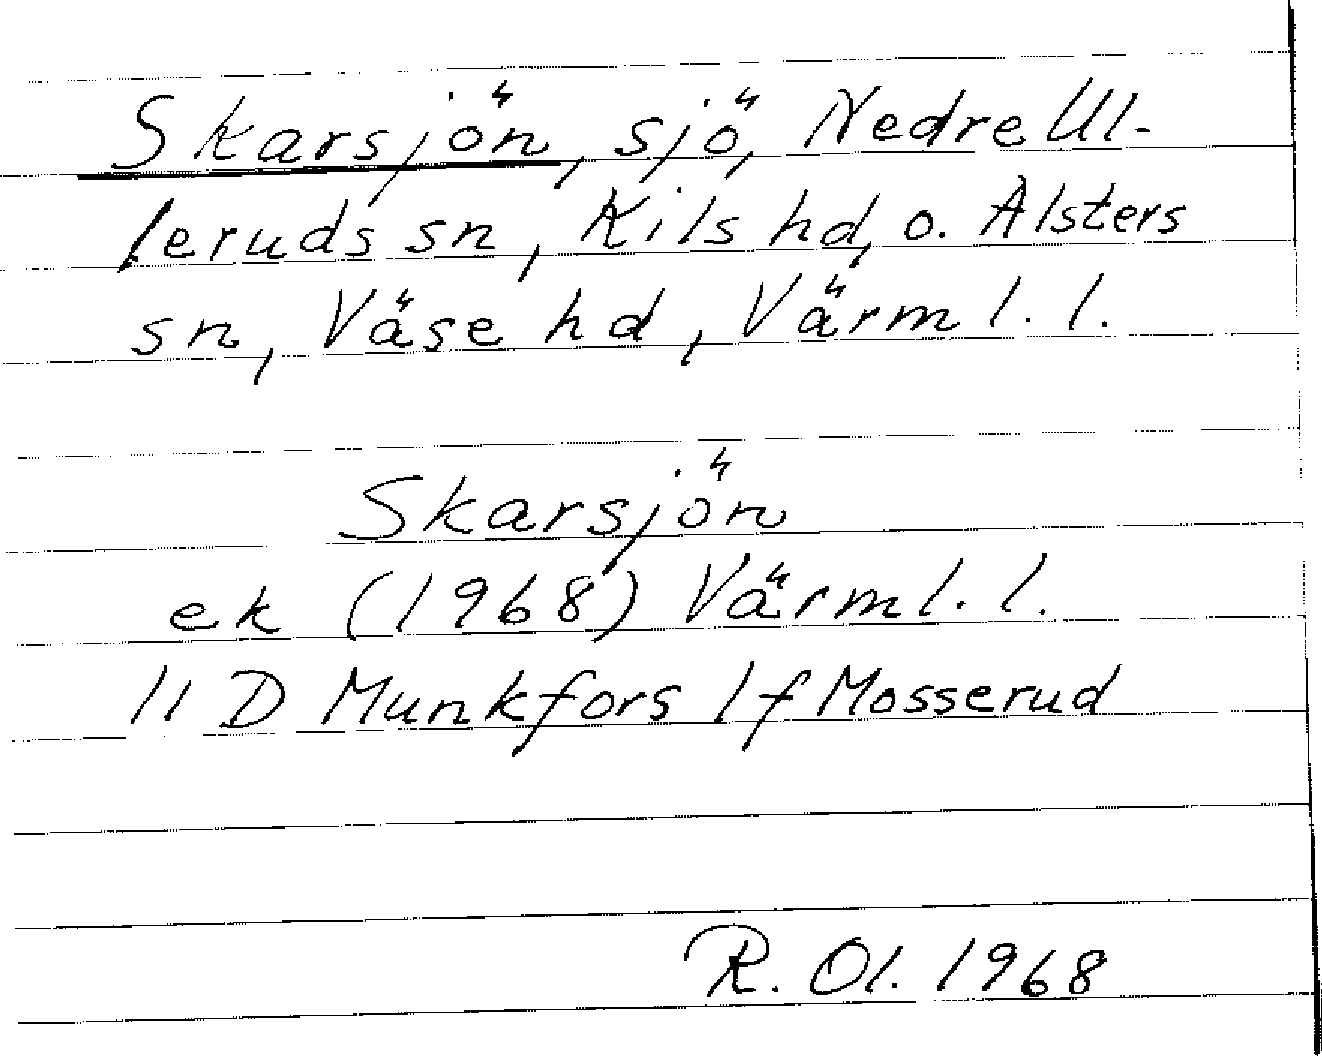 Skarsjön, sjö, Nedre Ul-
leruds sn, Kils hd, o. Alsters
sn, Väse hd, Värml. l.
Skarsjön
ek (1968) Värml. l.
11 D Munkfors 1f Mosserud
R. Ol. 1968